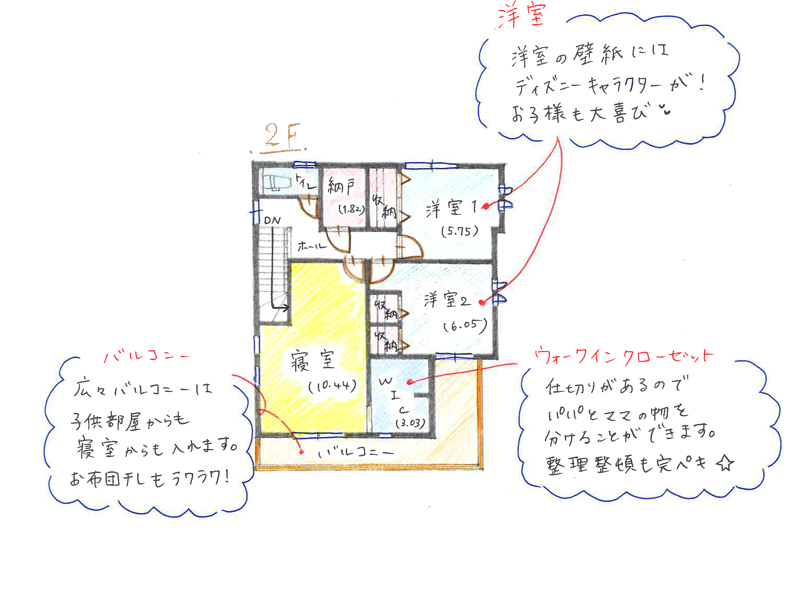 洋室
洋室の壁紙には
ディズニーキャラクターが!
お子様も大喜び
2F.
トイレ
納戸
(1.82)
収納
洋室1
(5.75)
DN
ホール
洋室2
(6.05)
収納
収納
寝室
(10.44)
WIC
(3.03)
バルコニー
バルコニー
広々バルコニーは
子供部屋からも
寝室からも入れます。
お布団干しもラクラク!
ウォークインクローゼット
仕切りがあるので
パパとママの物を
分けることができます。
整理整頓も完ペキ☆